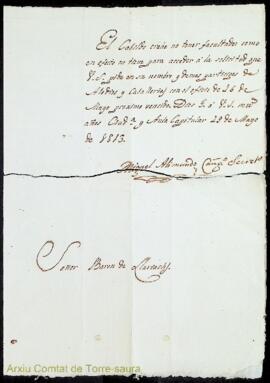 El Cabildo creia no tener facultades como
en efecto no tiene para acceder a la solicitud que
V. S. pide en su nombre y demas participes de
Alodios y Caballerias con el oficio de 16 de
Mayo proximo vencido. Dios g. a V. S. m.s
años Ciud.a y Aula Capitular 28 de Mayo
de 1813.
Miguel Alimundo Can.go Secret.o
Señor Baron de Lluriach.
Arxiu Comtat de Torre-saura